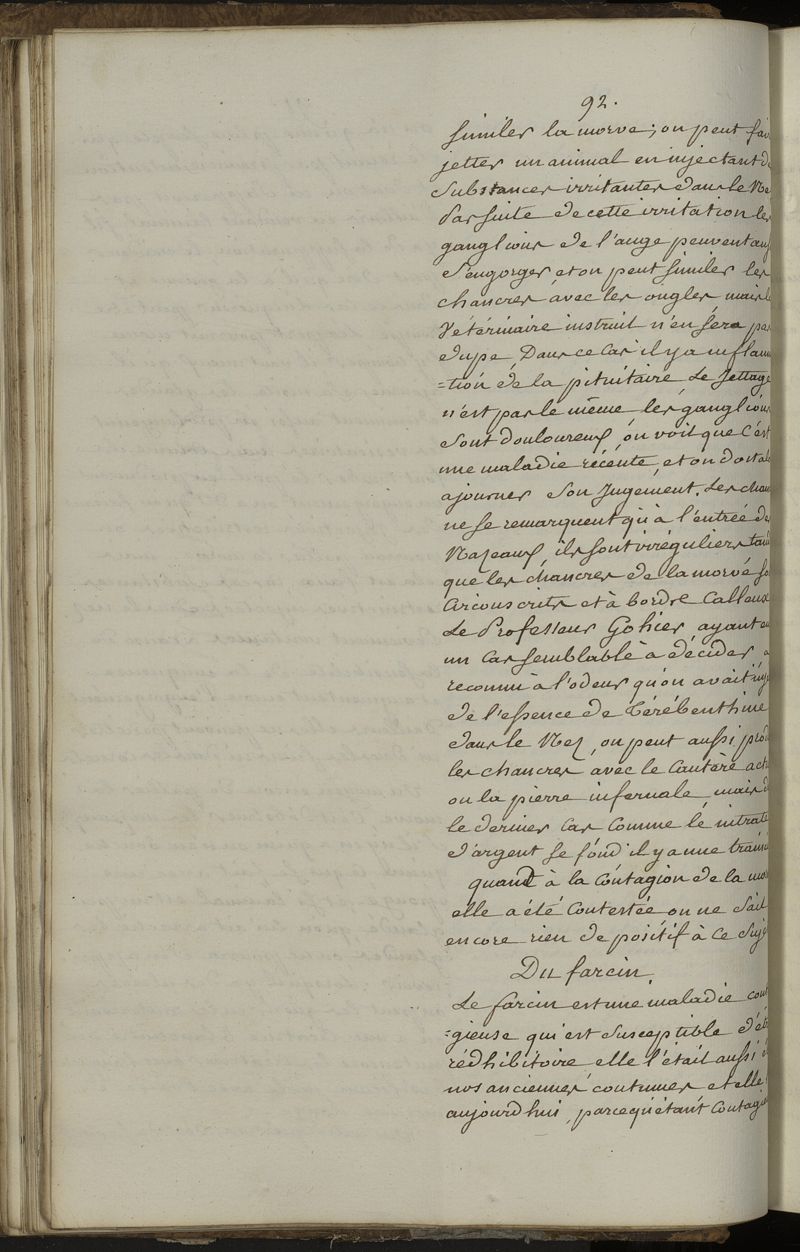 92.
similer la morve; on peut fai
jetter un animal en injectant d
Substances irritantes dans le Ne
Par suite de cette irritation les
ganglions de l'auge peuvent aus
s'engorger et on peut similer les
chancres avec les ongles, mais l
Vétérinaire instruit n'en sera pas
dupe, Dans ce Cas il y a inflam
=tion de la pituitaire Le Jettage
n'est pas le même les ganglions
sont douloureux, on voit que c'est
une maladie récente, et on doit al
ajourner son Jugement. Les chan
ne se remarquent qu'à l'entrée des
Nazeaux, ils sont irréguliers tan
que les chancres de la morve so
Circonscrits et à bords Calleux
Le Professeur Gohier ayant eu
un Cas semblable à décider a
reconnu à l'odeur qu'on avait inje
de l'essence de Térébenthine
dans le Nez, on peut aussi prod
les chancres avec le Cautère actu
ou la pierre infernale, mais d
le dernier Cas Comme le nitrate
d'argent se fond il y a une traîn
quand à la Contagion de la mor
elle a été Contestée on ne Sait
encore rien de positif à Ce Suj
Du farcin
Le farcin est une maladie cont
=gieuse qui est Susceptible d'êt
rédhibitoire elle l'était aussi d
nos anciennes coutumes et elle
aujourdhui, parcequ'étant Contagi